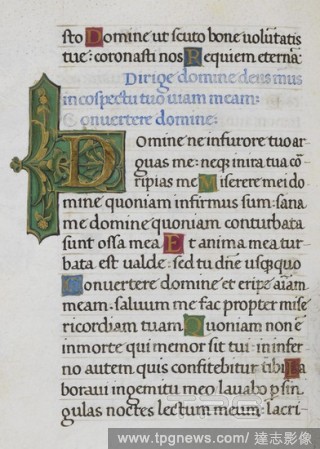 sto Domine ut scuto bone voluntatis
tue: coronasti nos Requiem eterna
Dirige domine deus mus
in cospectu tuo viam meam:
Convertere domine:
Domine ne in furore tuo ar
guas me: neqz in ira tua cō
ripias me Miserere mei do
mine quoniam infirmus sum: sana
me domine quoniam conturbata
sunt ossa mea Et anima mea tur
bata est valde: sed tu dn̄e usqzquo
Convertere domine et eripe aīam
meam: salvum me fac propter mise
ricordiam tuam Quoniam non ē
in morte qui memor sit tui: in infer
no autem quis confitebitur tibi La
boravi in gemitu meo lavabo p sin
gulas noctes lectum meum: lacri-
www.tpgnews.com / 達志影像